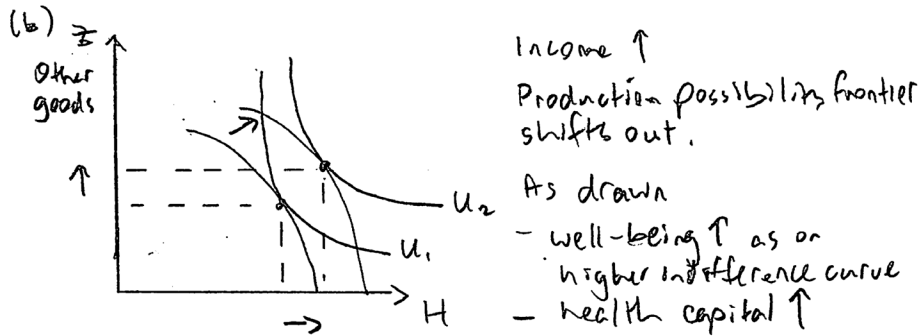 (b) Z
Other
goods
↑
U₂
U₁
→ H
Income ↑
Production possibility frontier
shifts out.
As drawn
- well-being ↑ as on
higher indifference curve
- health capital ↑